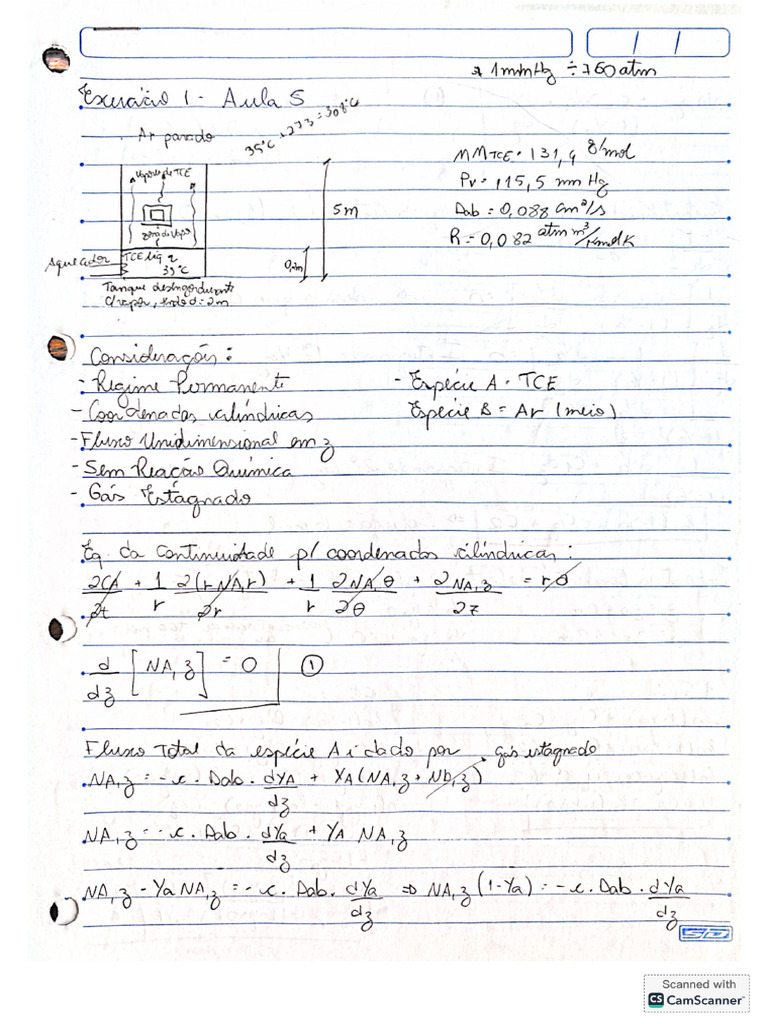 * 1 mmHg ÷ 760 atm
Exercício 1 - Aula 5
35°C + 273 = 308°C
Ar parado
Vapor de TCE
zona de vapor
5m
Aquecedor
TCE liq
35°C
0,2m
Tanque desengordurante
c/ vapor, d = 2m
MM TCE = 131,4 g/mol
Pv = 115,5 mm Hg
Dab = 0,088 cm²/s
R = 0,082 atm m³/Kmol K
Considerações:
- Regime Permanente
- Espécie A = TCE
- Coordenadas cilíndricas
Espécie B = Ar (meio)
- Fluxo Unidimensional em z
- Sem Reação Química
- Gás Estagnado
Eq. da continuidade p/ coordenadas cilíndricas:
∂CA/∂t + 1/r ∂(r NA,r)/∂r + 1/r ∂NA,θ/∂θ + ∂NA,z/∂z = r0
d/dz [NA,z] = 0 ①
Fluxo Total da espécie A é dado por
gás estagnado
NA,z = -c . Dab . dYA/dz + YA (NA,z + Nb,z)
NA,z = -c . Dab . dYa/dz + YA NA,z
NA,z - Ya NA,z = -c . Dab . dYa/dz ⇒ NA,z (1-Ya) = -c . Dab . dYa/dz
SD
Scanned with
CS CamScanner